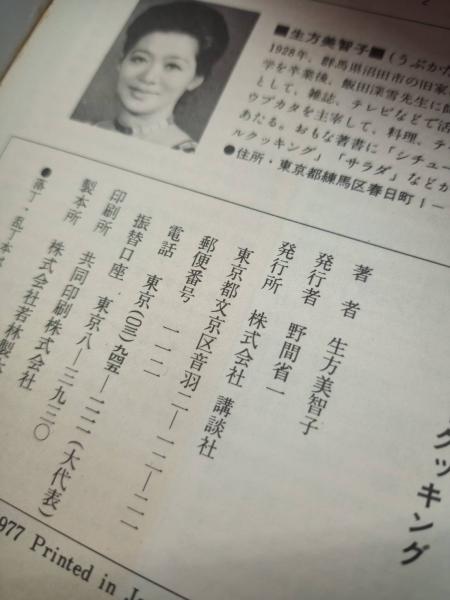 ■生方美智子■（うぶかた
1928年，群馬県沼田市の旧家
学を卒業後，飯田深雪先生に師
として，雑誌，テレビなどで活
ウブカタを主宰して，料理，テ
あたる。おもな著書に「シチュー
ルクッキング」「サラダ」などが
●住所・東京都練馬区春日町1－
クッキング
著者　生方美智子
発行者　野間省一
発行所　株式会社 講談社
東京都文京区音羽二―一二―二一
郵便番号　一一二
電話　東京(〇三)九四五―一一一一(大代表)
振替口座　東京八―三九三〇
印刷所　共同印刷株式会社
製本所　株式会社若林製本
●落丁・乱丁本
977 Printed in Ja